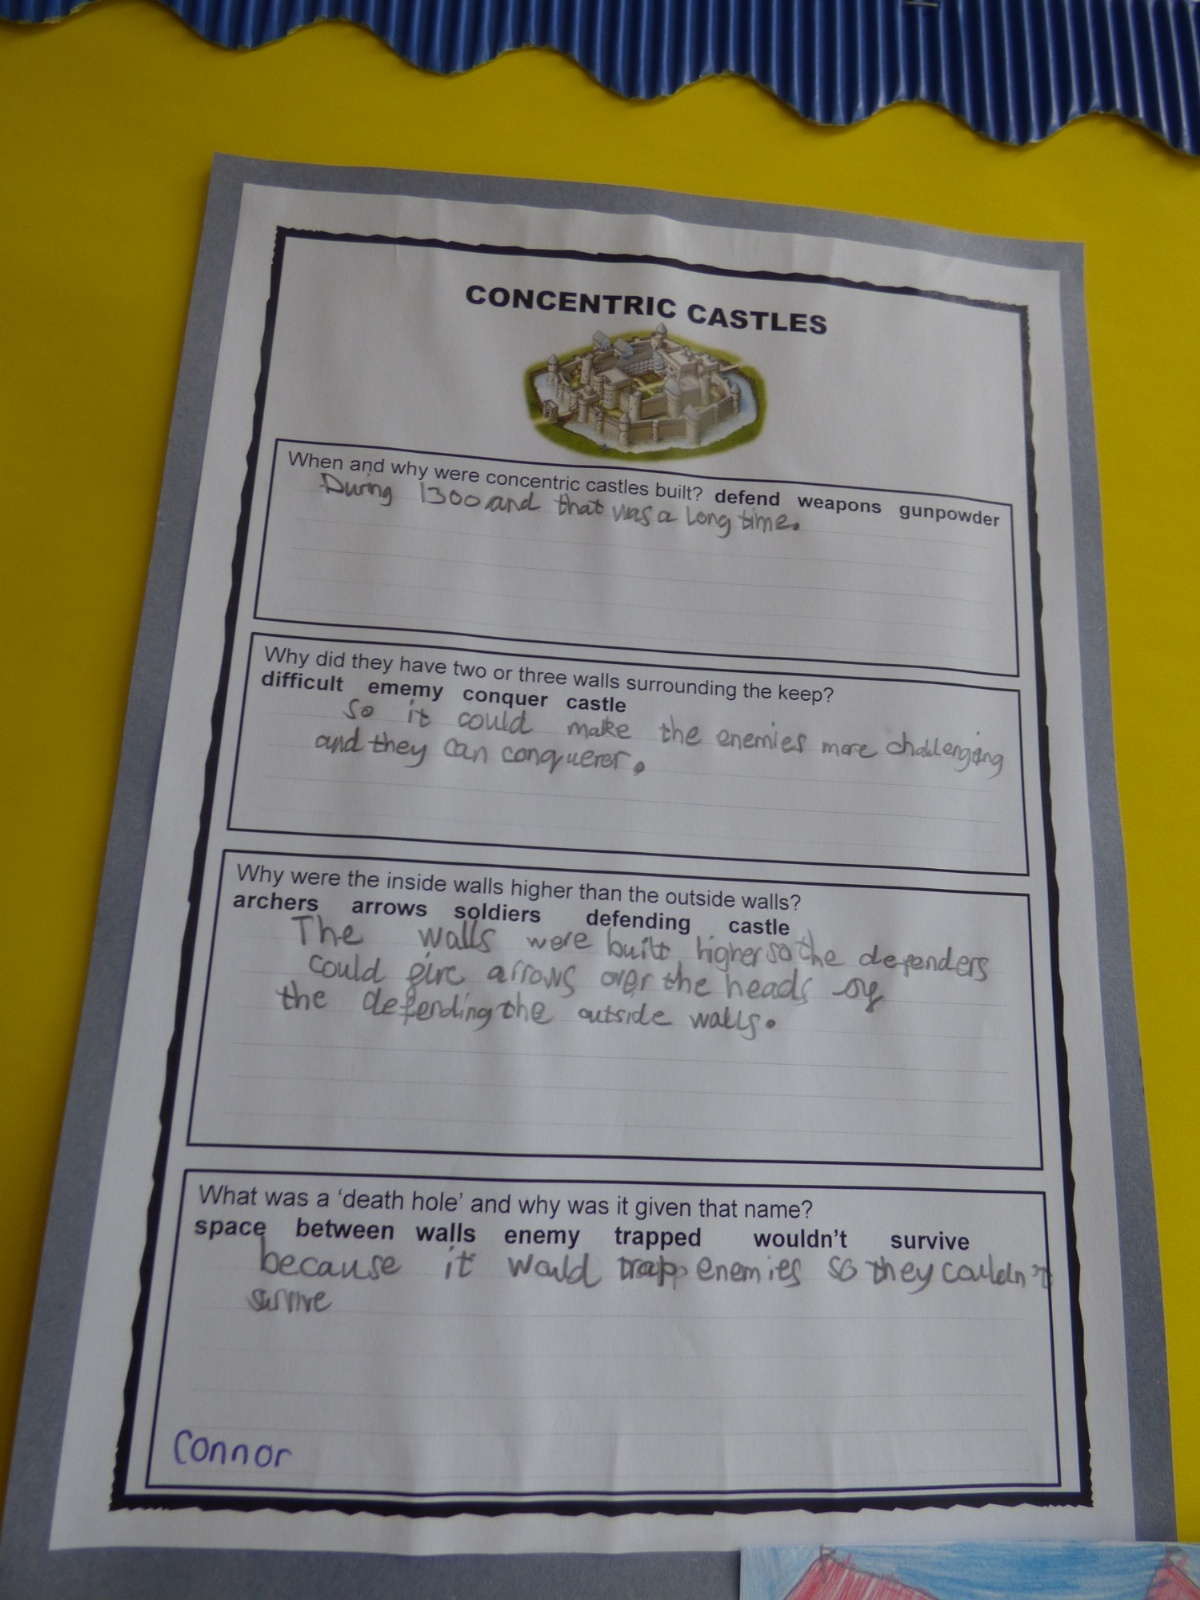 CONCENTRIC CASTLES
When and why were concentric castles built? defend weapons gunpowder
During 1300 and that was a long time.
Why did they have two or three walls surrounding the keep?
difficult ememy conquer castle
so it could make the enemies more challenging
and they can conquerer.
Why were the inside walls higher than the outside walls?
archers arrows soldiers defending castle
The walls were built higher so the defenders
could fire arrows over the heads of
the defending the outside walls.
What was a 'death hole' and why was it given that name?
space between walls enemy trapped wouldn't survive
because it would trapp enemies so they couldn't
survive
Connor